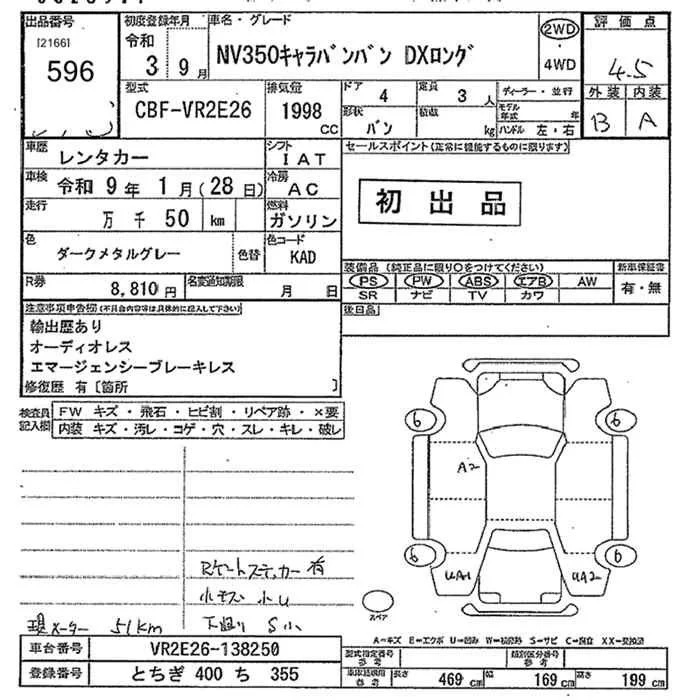 出品番号
[2166]
596
初度登録年月
令和
3 9月
車名・グレード
NV350キャラバンバン DXロング
2WD
・
4WD
評価点
4.5
外装 内装
B A
型式
CBF-VR2E26
排気量
1998
CC
ドア 4
定員 3 人
形状 バン
積載 kg
ディーラー・並行
モデル年式 年
ハンドル 左・右
車歴 レンタカー
シフト IAT
車検 令和 9年 1月(28日)
冷房 AC
走行 万 千 50 km
燃料 ガソリン
色 ダークメタルグレー 色替
色コード KAD
R券 8,810円
名変通知期限 月 日
セールスポイント(正常に機能するものに限ります)
初出品
装備品 (純正品に限り○をつけてください)
PS PW ABS エアB AW
SR ナビ TV カワ
新車保証書
有・無
後日品
注意事項申告欄(不具合内容等は具体的に記入して下さい)
輸出歴あり
オーディオレス
エマージェンシーブレーキレス
修復歴 有〔箇所 〕
検査員記入欄
FW キズ・飛石・ヒビ割・リペア跡・×要
内装 キズ・汚レ・コゲ・穴・スレ・キレ・破レ
6 6
A2
6 6
UA1 UA2
スペア
Rゲートステッカー有
小キズ 小U
現メーター 51km 下廻り S小
A=キズ E=エクボ U=凹み W=補修跡 S=サビ C=腐食 XX=交換済
車台番号 VR2E26-138250
型式指定番号 参考
類別区分番号 参考
登録番号 とちぎ 400 ち 355
長さ 469 cm 幅 169 cm 高さ 199 cm